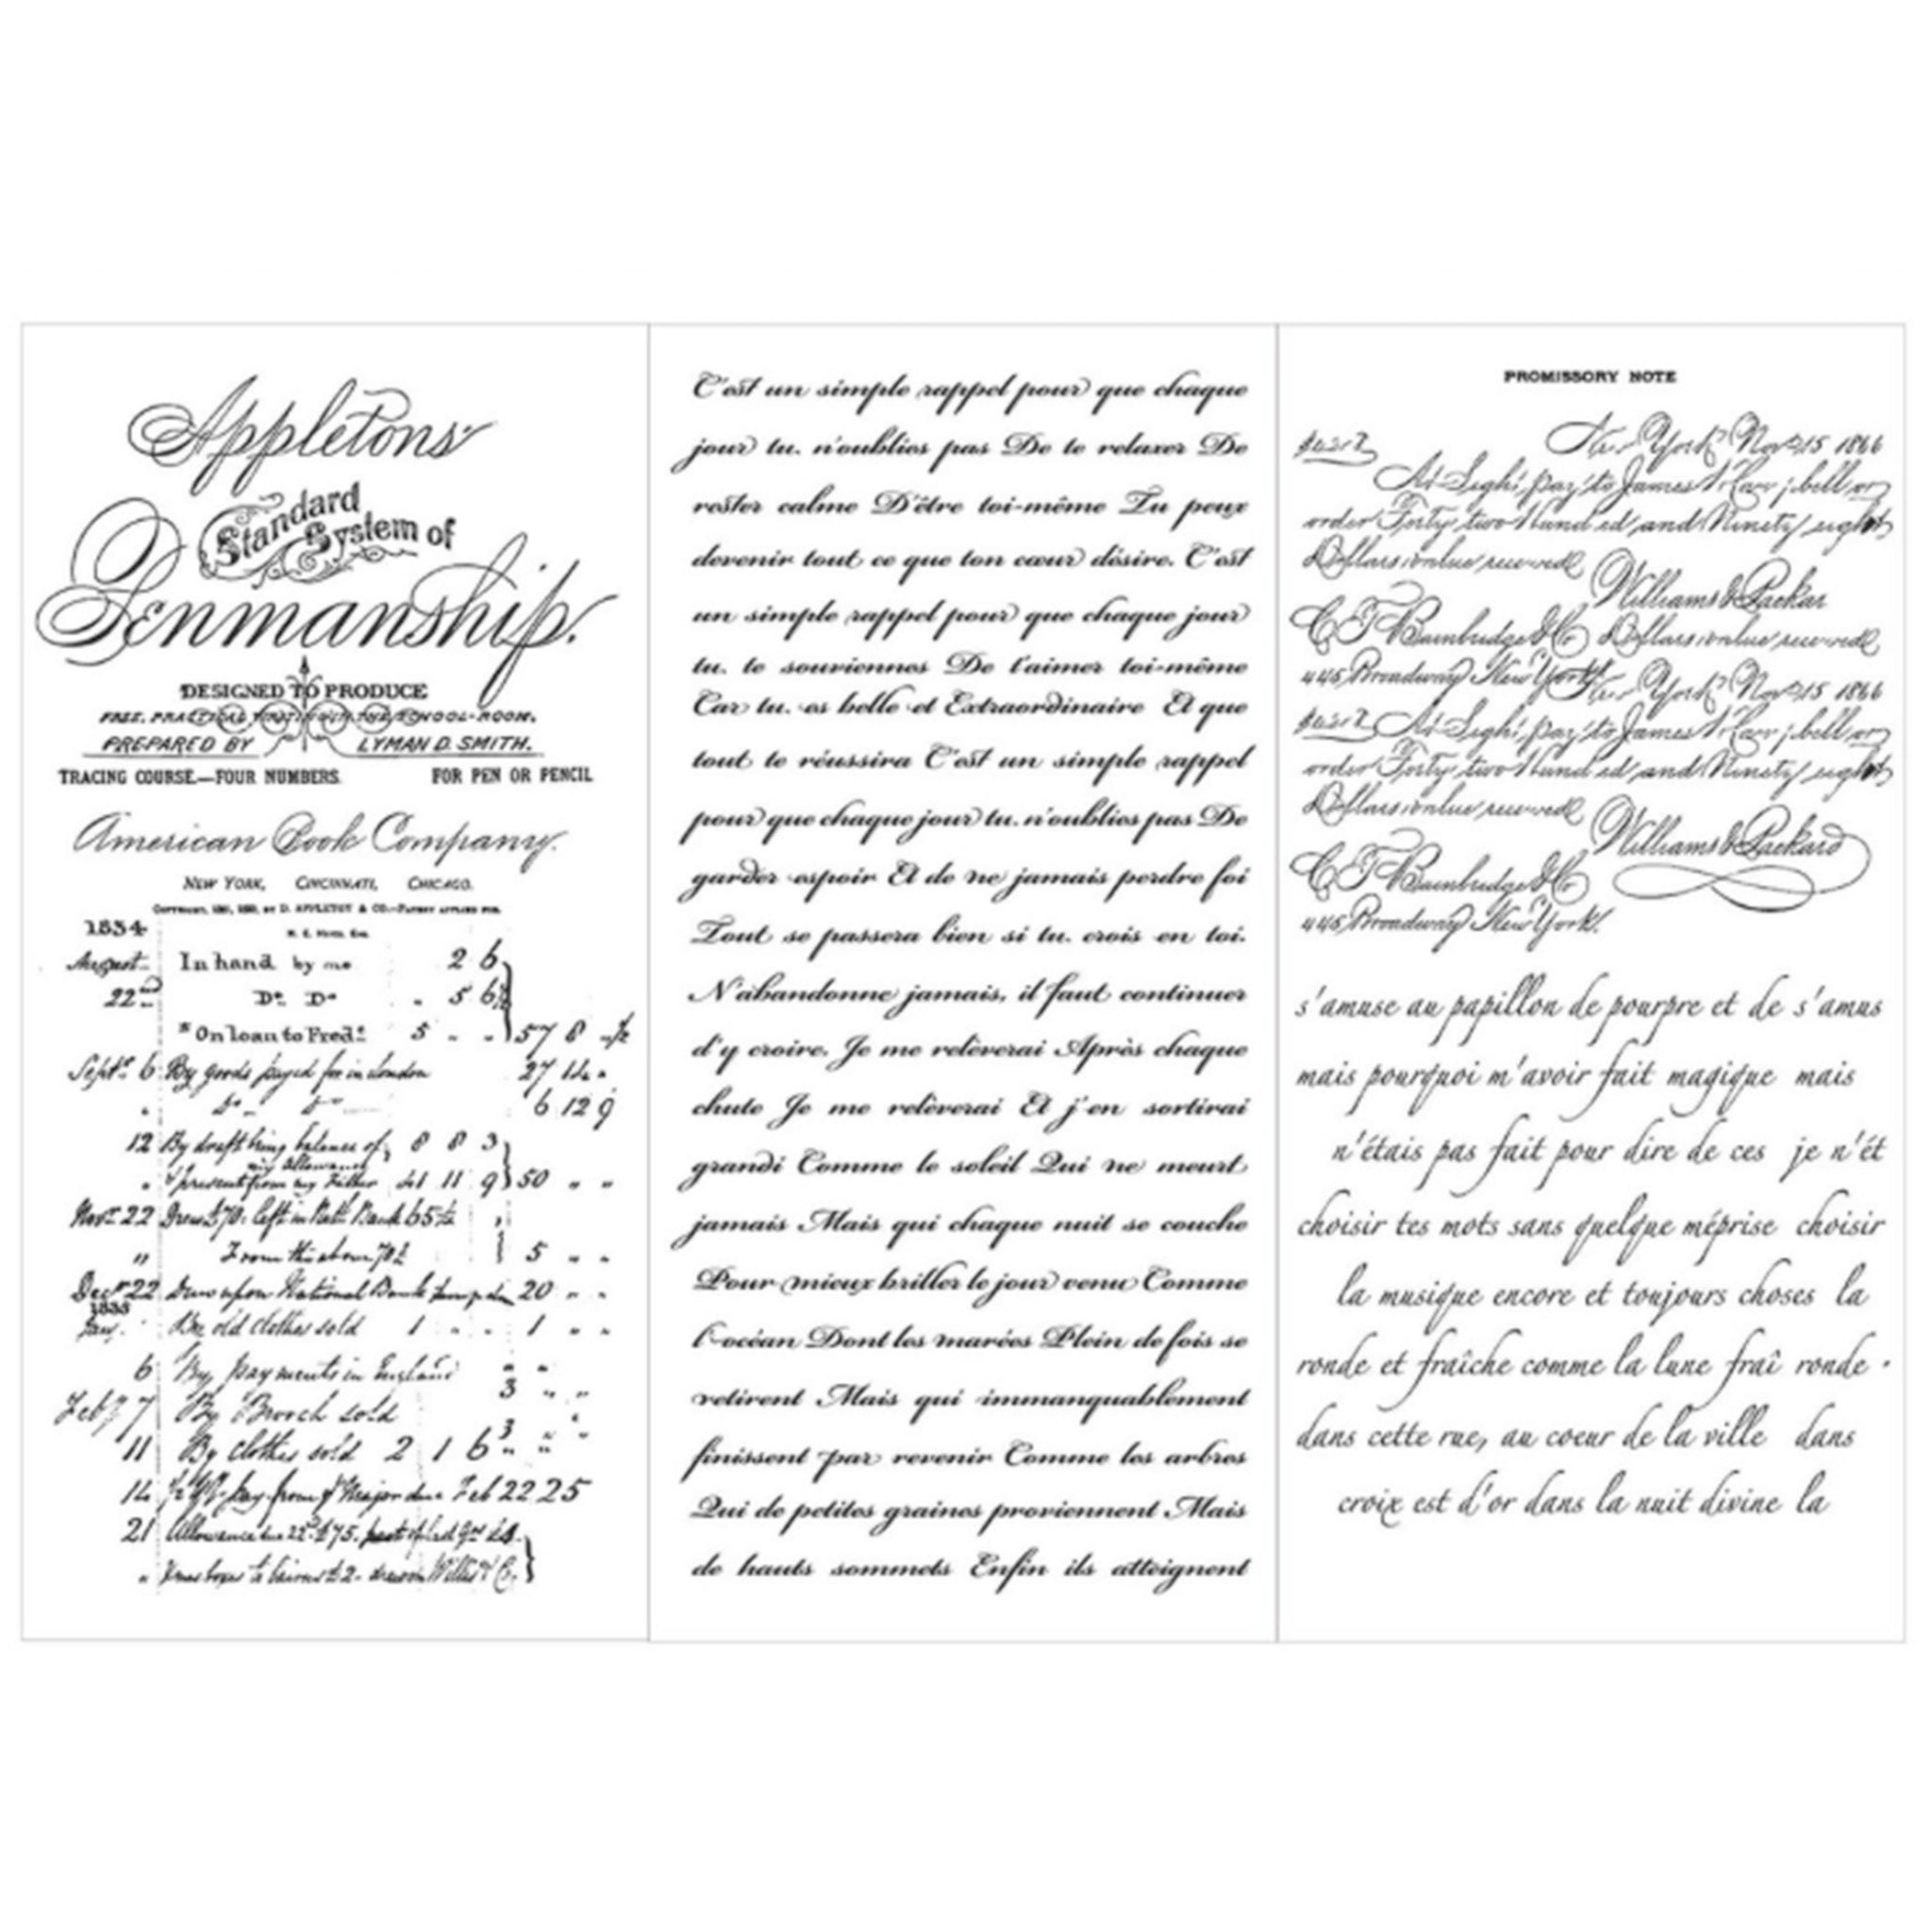 Appletons'
Standard
System of
Penmanship.
DESIGNED TO PRODUCE
FREE, PRACTICAL WRITING IN THE SCHOOL-ROOM.
PREPARED BY LYMAN D. SMITH.
TRACING COURSE.—FOUR NUMBERS. FOR PEN OR PENCIL
American Book Company.
NEW YORK, CINCINNATI, CHICAGO.
1834
August In hand by me 2 6
22nd Do Do 5 6½
*On loan to Fredk 5 57 8 ½
Septr 6 By goods payed for in London 27 14
6 12 9
12 By draft being balance of 8 8 3
my Allowance
" present from my Father 41 11 9 50 " "
Novr 22 left in Bank 65
" From the above 70£ 5 " "
Decr 22 Drew upon National Bank 20 " "
1835
Jany. By old clothes sold 1 " " 1 " "
6 By payments in England
3 " "
Feby 7 By Brooch sold
11 By clothes sold 2 1 6
14 pay from Major due Feb 22 25
21 Allowance
C'est un simple rappel pour que chaque
jour tu. n'oublies pas De te relaxer De
rester calme D'être toi-même Tu peux
devenir tout ce que ton cœur désire. C'est
un simple rappel pour que chaque jour
tu. te souviennes De t'aimer toi-même
Car tu. es belle et Extraordinaire Et que
tout te réussira C'est un simple rappel
pour que chaque jour tu. n'oublies pas De
garder espoir Et de ne jamais perdre foi
Tout se passera bien si tu. crois en toi.
N'abandonne jamais, il faut continuer
d'y croire. Je me relèverai Après chaque
chute Je me relèverai Et j'en sortirai
grandi Comme le soleil Qui ne meurt
jamais Mais qui chaque nuit se couche
Pour mieux briller le jour venu Comme
l'océan Dont les marées Plein de fois se
retirent Mais qui immanquablement
finissent par revenir Comme les arbres
Qui de petites graines proviennent Mais
de hauts sommets Enfin ils atteignent
PROMISSORY NOTE
New York Nov 15 1866
At Sight pay to James W Campbell or
order Forty two Hundred and Ninety eight
Dollars value received
Williams & Packar
C F Bambridge & Co Dollars value received
445 Broadway New York. New York Nov 15 1866
At Sight pay to James W Campbell or
order Forty two Hundred and Ninety eight
Dollars value received
Williams & Packard
C F Bambridge & Co
445 Broadway New York.
s'amuse au papillon de pourpre et de s'amus
mais pourquoi m'avoir fait magique mais
n'étais pas fait pour dire de ces je n'ét
choisir tes mots sans quelque méprise choisir
la musique encore et toujours choses la
ronde et fraîche comme la lune fraî ronde
dans cette rue, au coeur de la ville dans
croix est d'or dans la nuit divine la